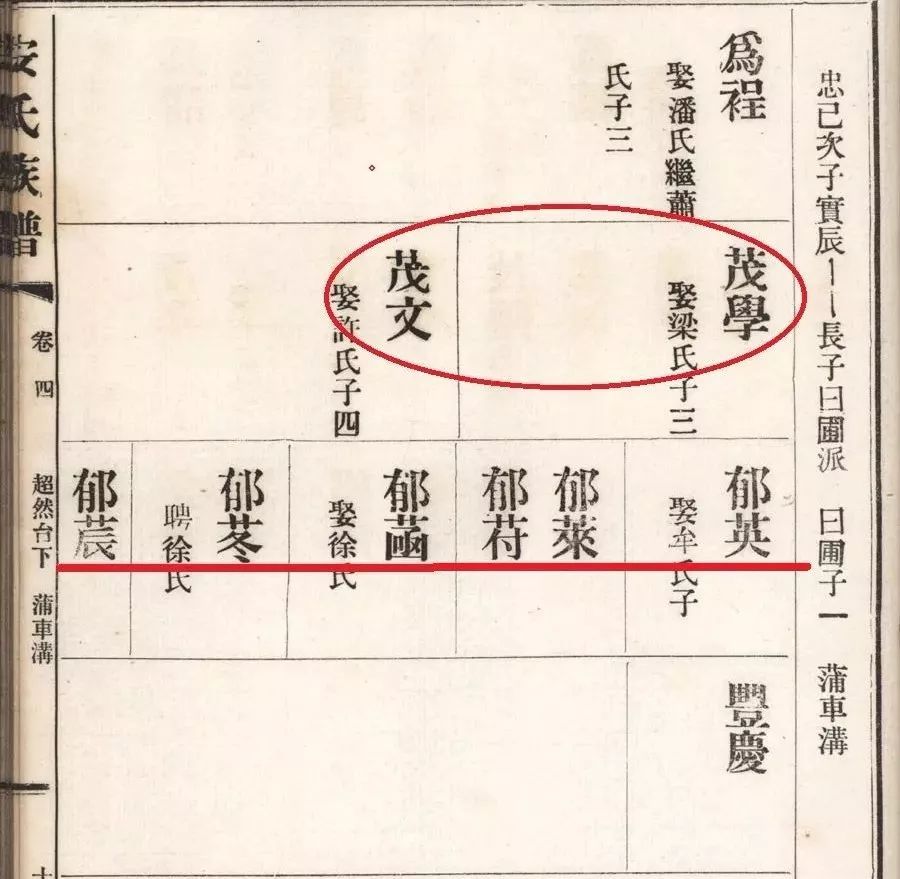 忠己次子實辰——長子曰圃派　曰圃子一　蒲車溝
爲裎
娶潘氏繼蕭
氏子三
茂學
娶梁氏子三
茂文
娶許氏子四
郁英
娶牟氏子
郁萊
郁苻
郁菡
娶徐氏
郁苳
聘徐氏
郁莀
豐慶
安氏族譜
卷四
超然台下　蒲車溝
十